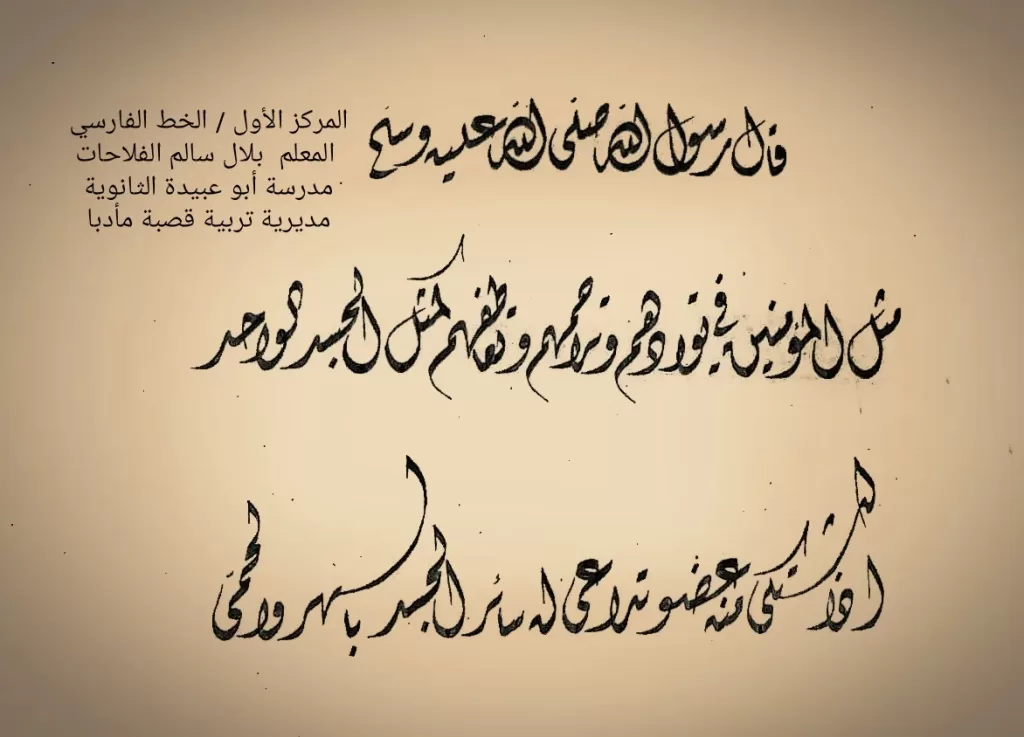 قال رسول الله صلى الله عليه وسلم
المركز الأول / الخط الفارسي
المعلم بلال سالم الفلاحات
مدرسة أبو عبيدة الثانوية
مديرية تربية قصبة مأدبا
مثل المؤمنين في توادهم وتراحمهم وتعاطفهم كمثل الجسد الواحد
اذا اشتكى منه عضو تداعى له سائر الجسد بالسهر والحمى